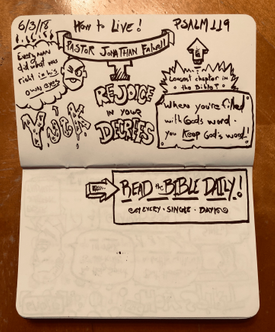 6/3/18
How to Live!
PSALM 119
PASTOR JONATHAN Falwell
Every man
did what was
right in his
own eyes
YUCK
REJOICE
IN YOUR
DECREES
Longest chapter in
the Bible!
When you're filled
with God's word -
you KEEP God's word!
READ the BIBLE DAILY!
EVERY · SINGLE · DAY